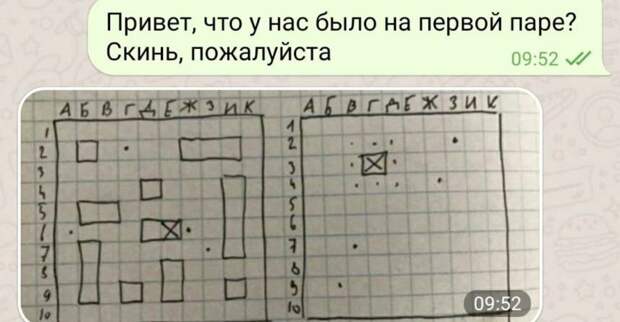 Привет, что у нас было на первой паре?
Скинь, пожалуйста
09:52
А Б В Г Д Е Ж З И К
1
2
3
4
5
6
7
8
9
10
А Б В Г Д Е Ж З И К
1
2
3
4
5
6
7
8
9
10
09:52